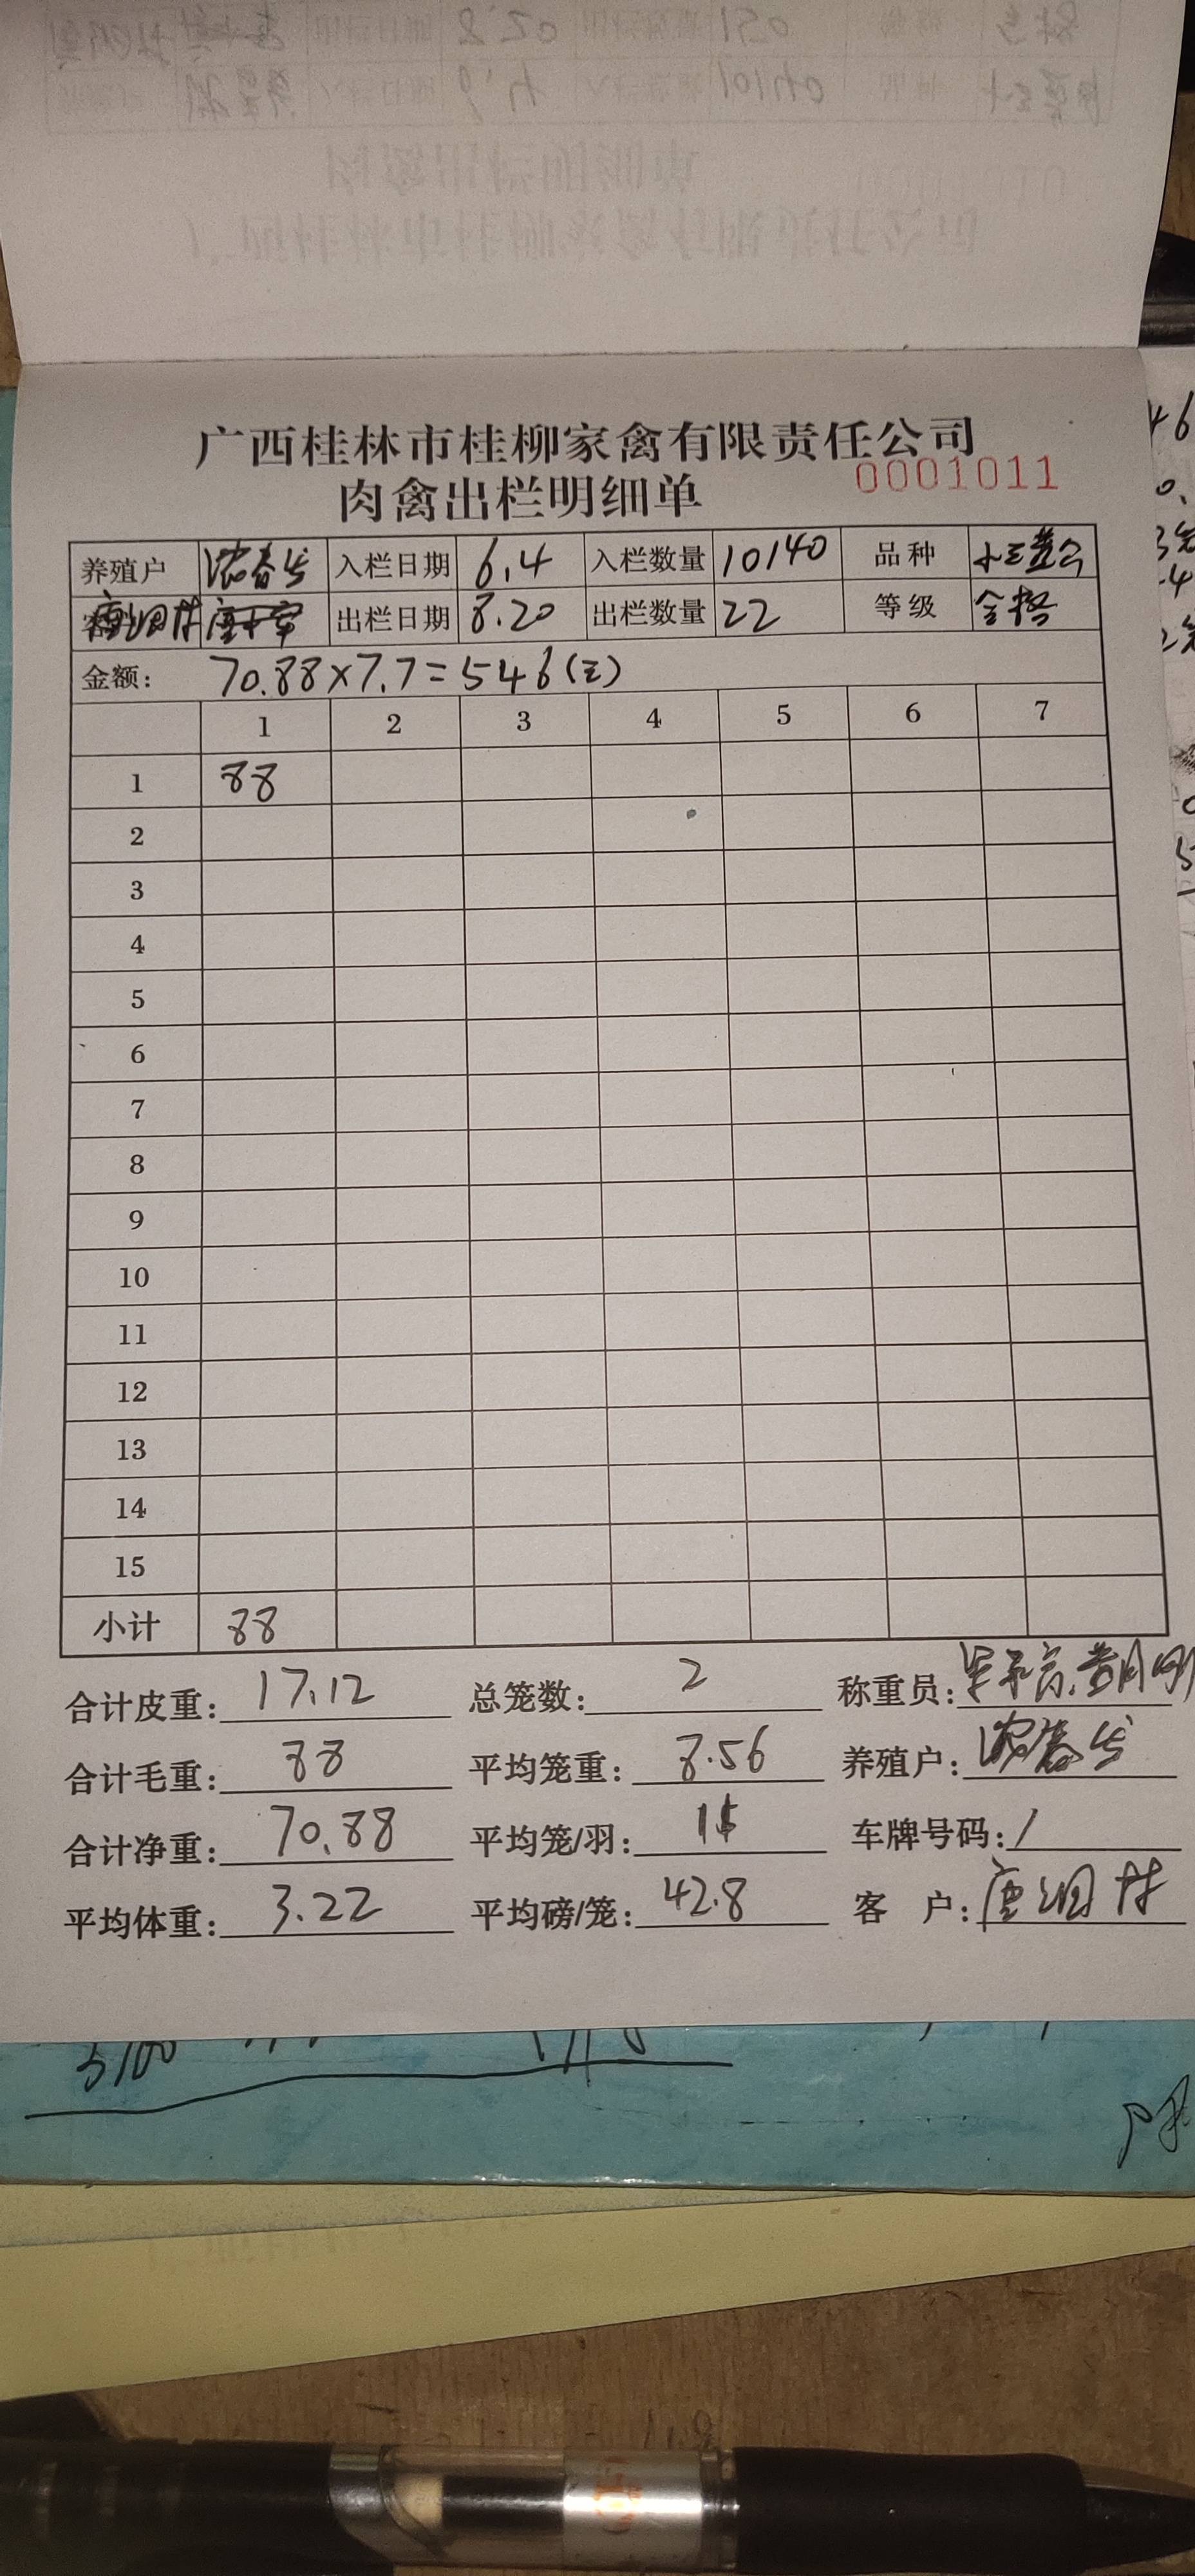 广西桂林市桂柳家禽有限责任公司
0001011
肉禽出栏明细单
养殖户 春 入栏日期 6.4 入栏数量 10140 品种 土三黄
唐 出栏日期 8.20 出栏数量 22 等级 合格
金额: 70.88×7.7=546(元)
1 2 3 4 5 6 7
1 88
2
3
4
5
6
7
8
9
10
11
12
13
14
15
小计 88
合计皮重: 17.12 总笼数: 2 称重员:
合计毛重: 88 平均笼重: 8.56 养殖户: 春
合计净重: 70.88 平均笼/羽: 车牌号码: /
平均体重: 3.22 平均磅/笼: 42.8 客 户: 唐
5100